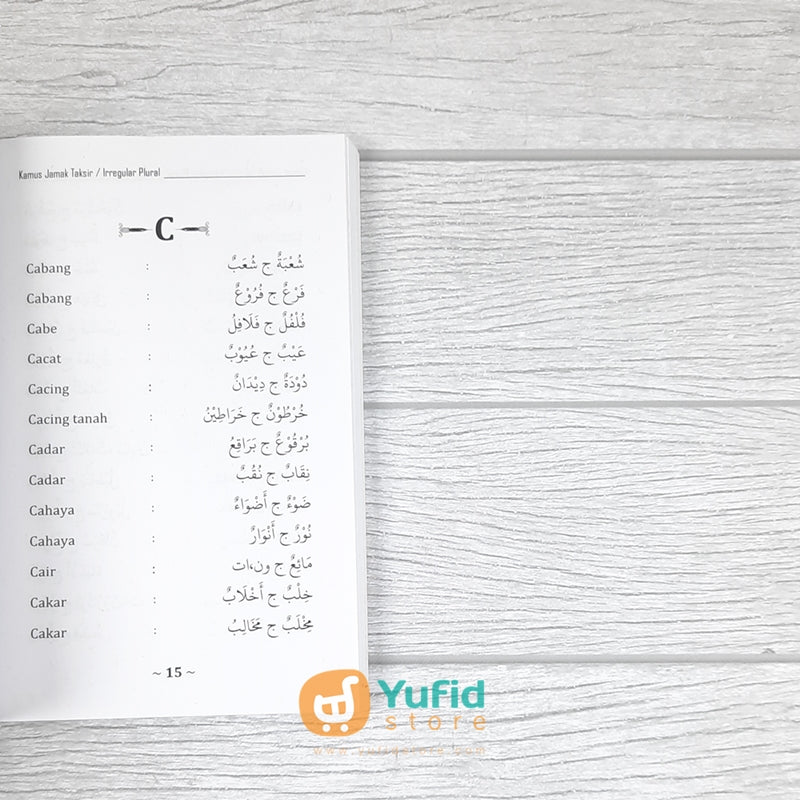 Kamus Jamak Taksir / Irregular Plural
C
Cabang : شُعْبَةٌ ج شُعَبٌ
Cabang : فَرْعٌ ج فُرُوْعٌ
Cabe : فُلْفُلٌ ج فَلَافِلُ
Cacat : عَيْبٌ ج عُيُوْبٌ
Cacing : دُوْدَةٌ ج دِيْدَانٌ
Cacing tanah : خُرْطُوْنٌ ج خَرَاطِيْنُ
Cadar : بُرْقُوْعٌ ج بَرَاقِعُ
Cadar : نِقَابٌ ج نُقُبٌ
Cahaya : ضَوْءٌ ج أَضْوَاءٌ
Cahaya : نُوْرٌ ج أَنْوَارٌ
Cair : مَائِعٌ ج ون،ات
Cakar : خِلْبٌ ج أَخْلَابٌ
Cakar : مِخْلَبٌ ج مَخَالِبُ
~ 15 ~
Yufid
store
www.yufidstore.com